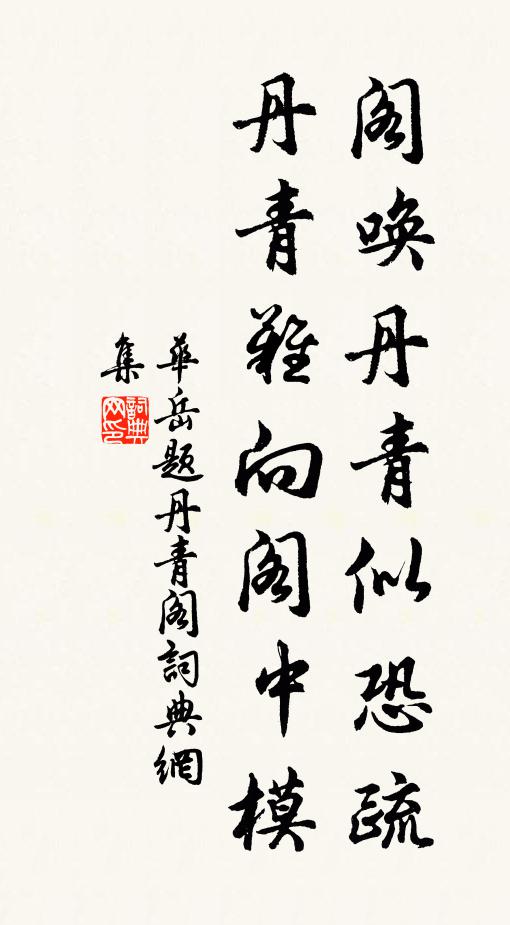 閣喚丹青似恐疏
丹青難向閣中模
華岳題丹青閣詞典網
集
詞典
网印